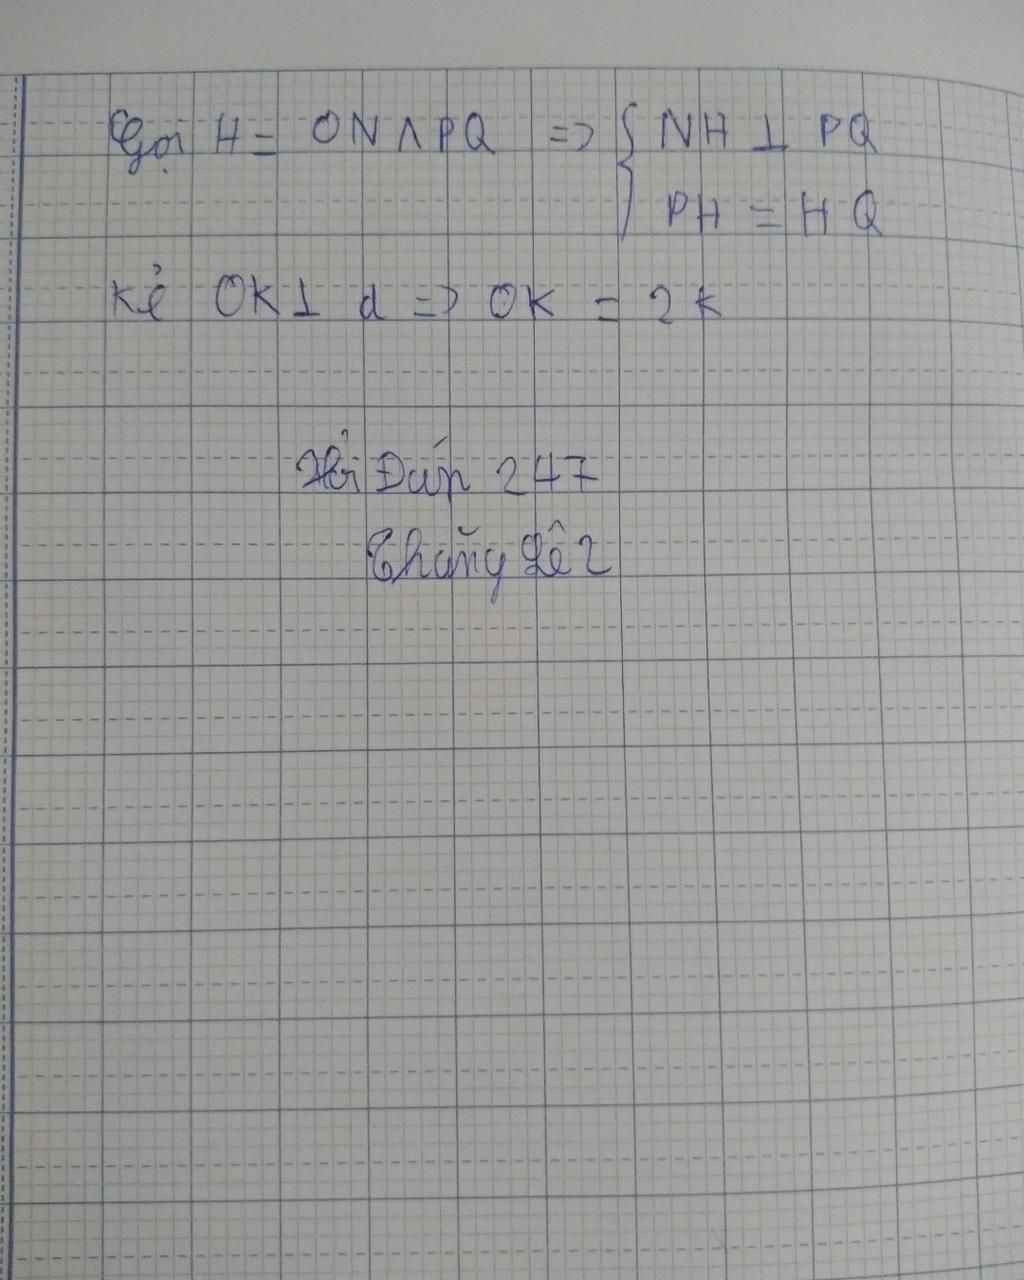 Gọi H = ON ∩ PQ => { NH ⊥ PQ
PH = HQ
Kẻ OK ⊥ d => OK = 2k
Hỏi Đáp 247
Thắng Lê 2